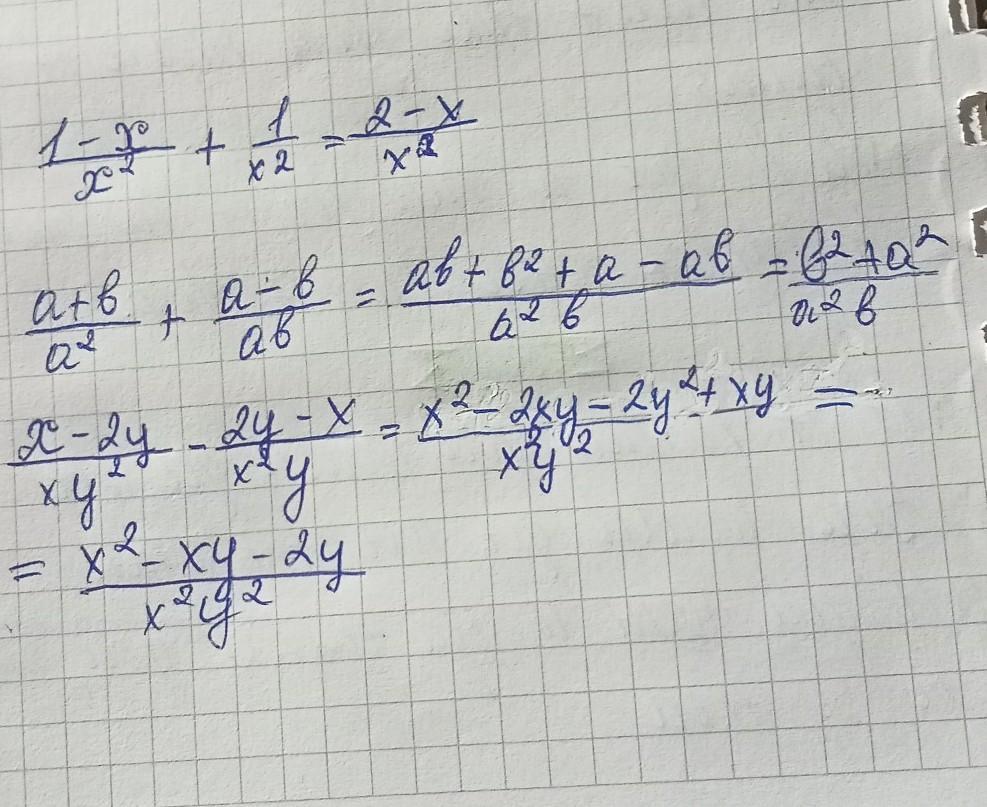 (1-x)/x² + 1/x² = (2-x)/x²
(a+b)/a² + (a-b)/ab = (ab+b²+a-ab)/a²b = (b²+a²)/a²b
(x-2y)/xy² - (2y-x)/x²y = (x²-2xy-2y²+xy)/x²y² =
= (x²-xy-2y)/x²y²